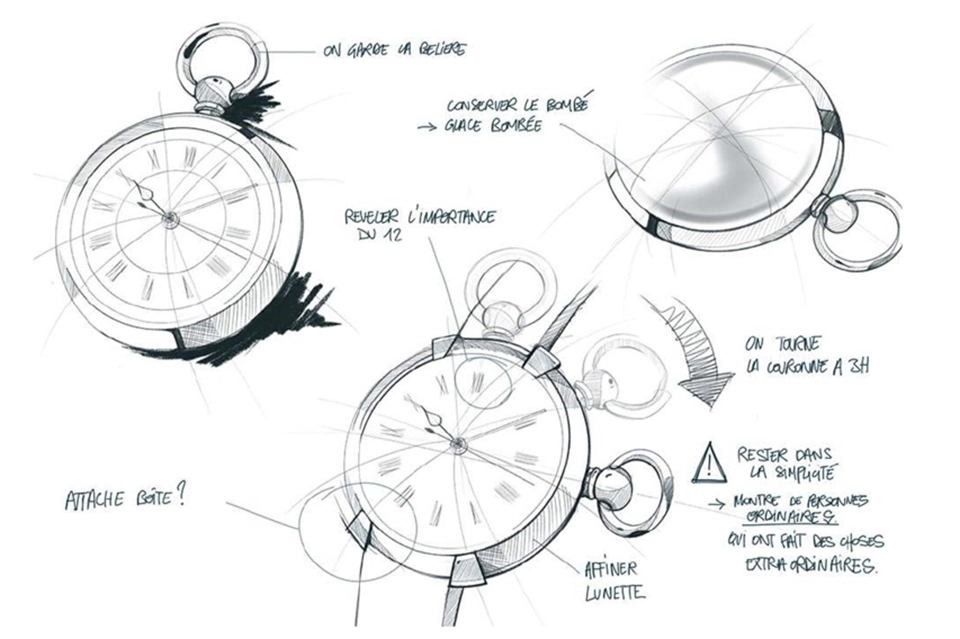 ON GARDE LA BELIERE
CONSERVER LE BOMBÉ
→ GLACE BOMBÉE
REVELER L'IMPORTANCE
DU 12
ON TOURNE
LA COURONNE A 3H
! RESTER DANS
LA SIMPLICITÉ
→ MONTRE DE PERSONNES
ORDINAIRES
QUI ONT FAIT DES CHOSES
EXTRA ORDINAIRES.
ATTACHE BOÎTE?
AFFINER
LUNETTE